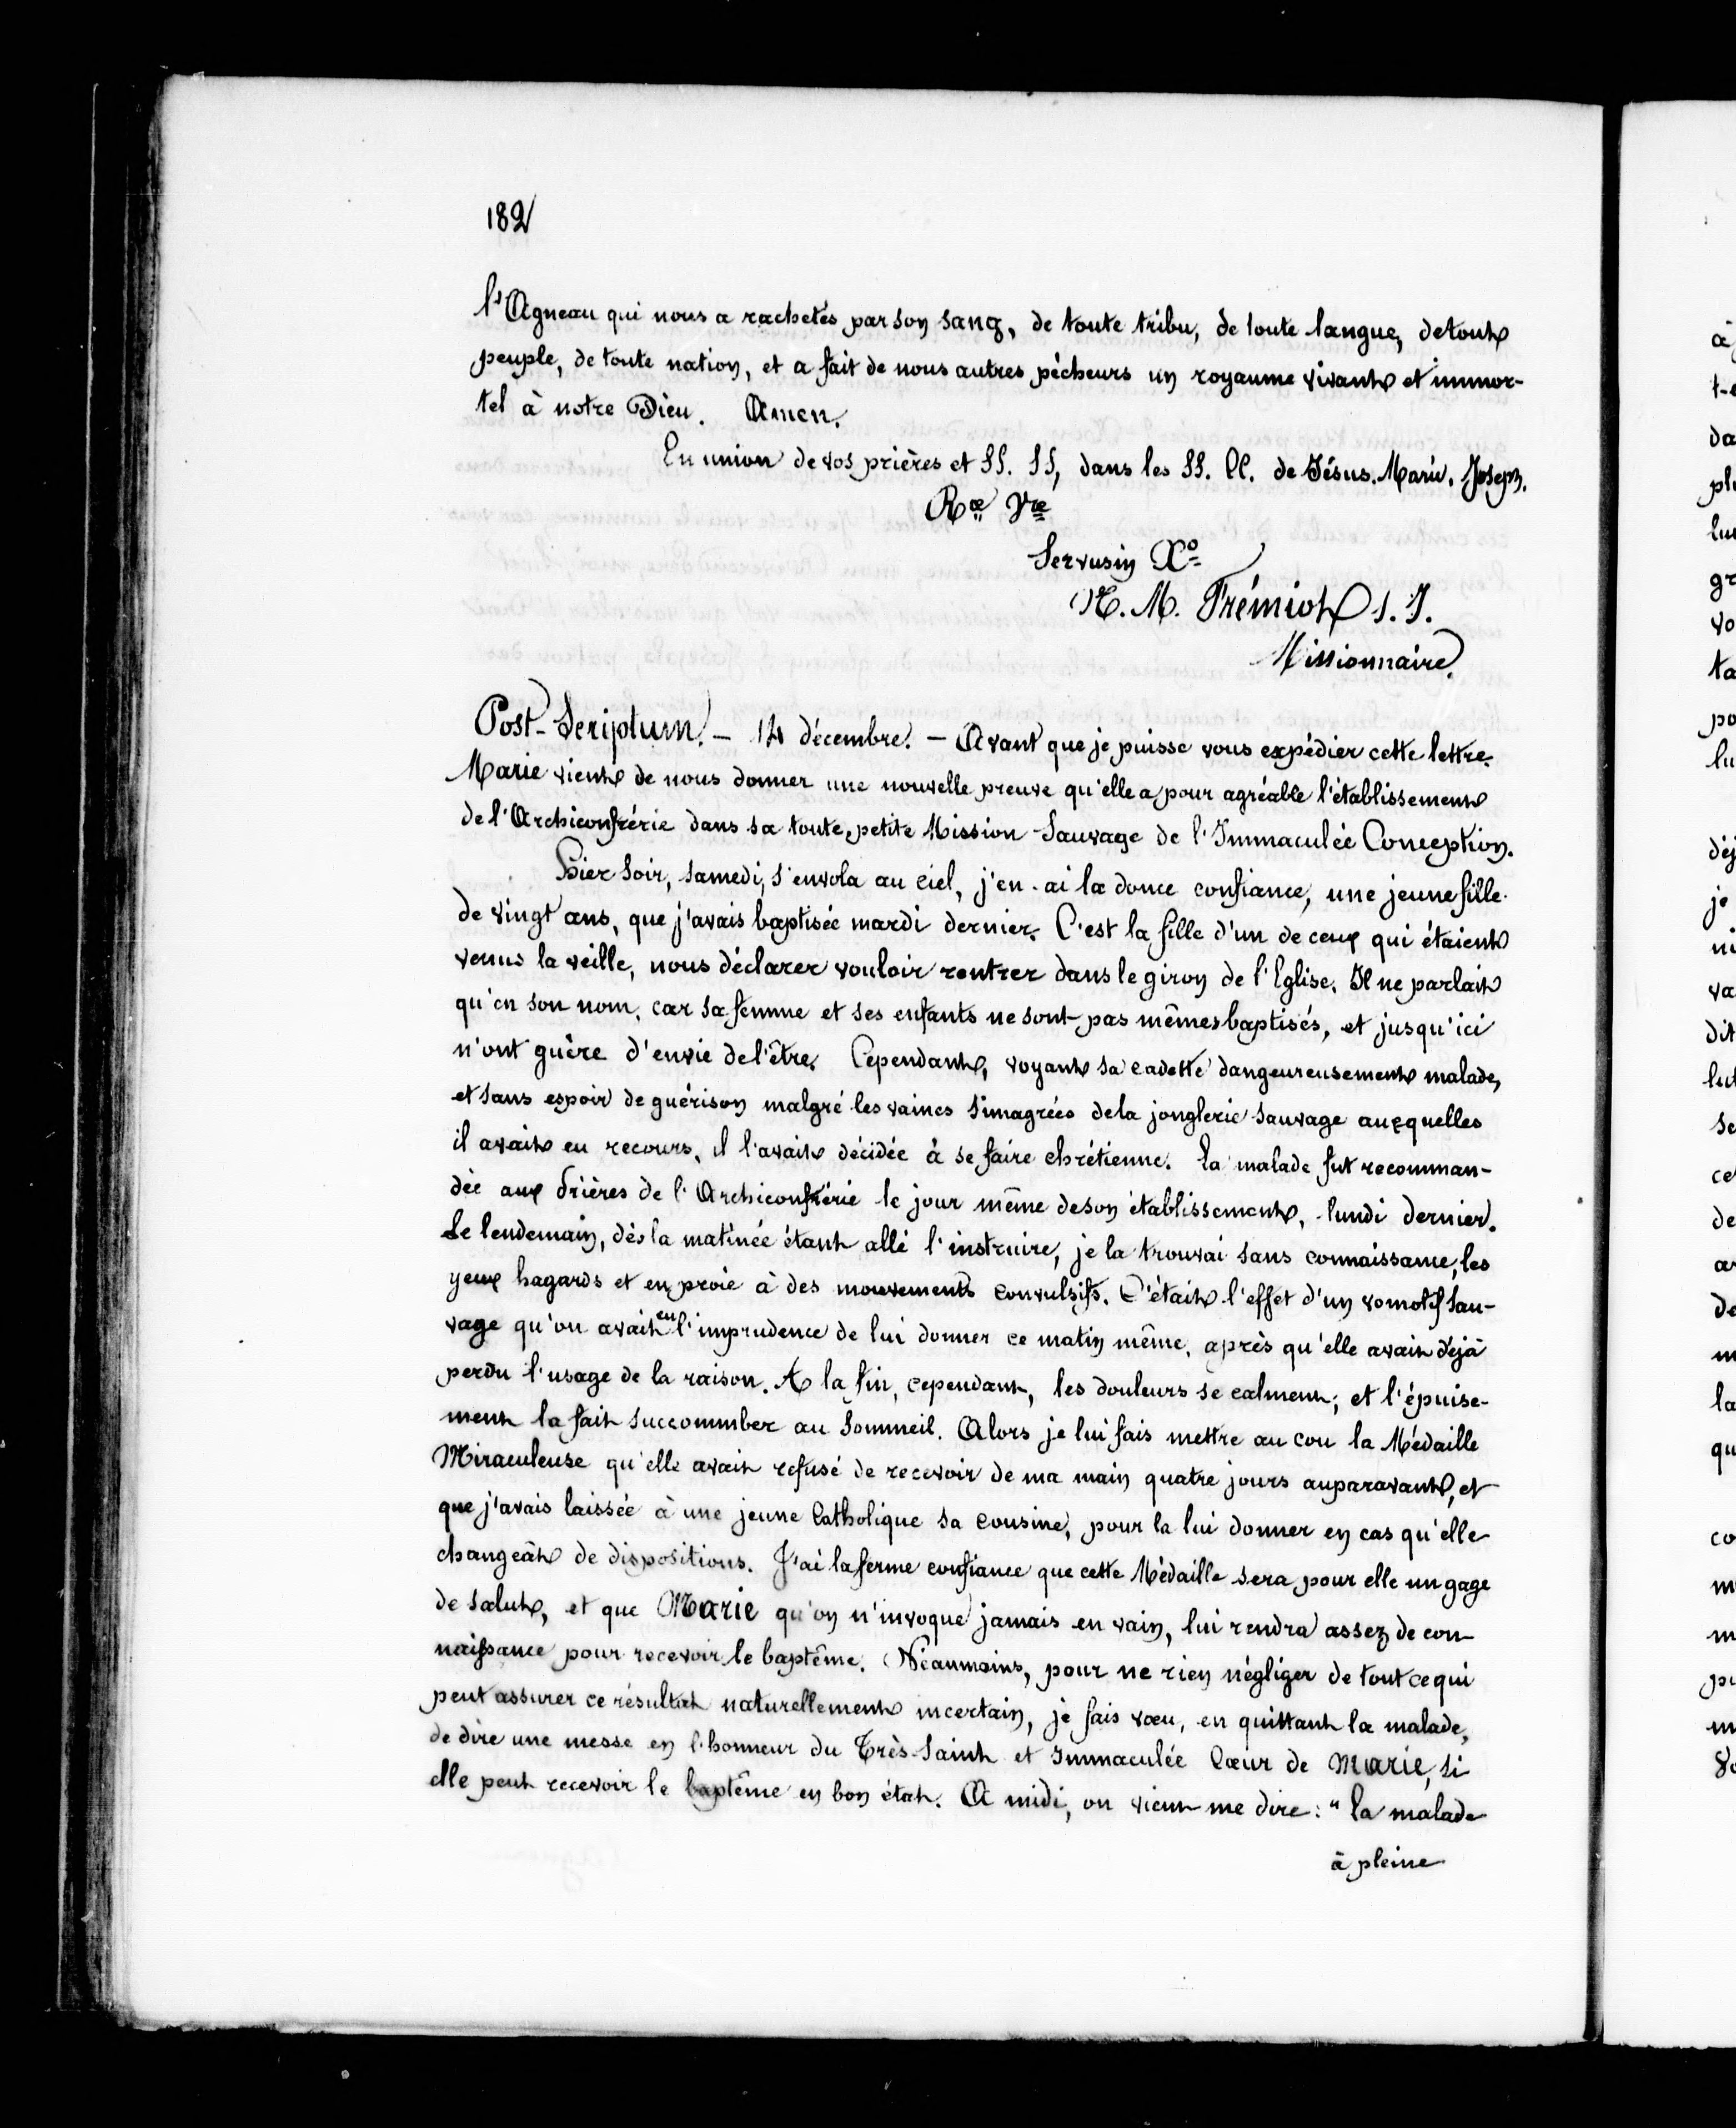 182
l'Agneau qui nous a rachetés par son sang, de toute tribu, de toute langue, de tout
peuple, de toute nation, et a fait de nous autres pécheurs un royaume vivant et immor-
tel à notre Dieu. Amen.
En union de vos prières et SS. SS, dans les SS. CC. de Jésus. Marie. Joseph.
Rce Vre
Servus in Xo
N. M. Frémiot S. J.
Missionnaire.
Post-Scriptum. - 14 décembre. - Avant que je puisse vous expédier cette lettre.
Marie vient de nous donner une nouvelle preuve qu'elle a pour agréable l'établissement
de l'Archiconfrérie dans sa toute petite Mission Sauvage de l'Immaculée Conception.
Hier soir, samedi, s'envola au ciel, j'en ai la douce confiance, une jeune fille
de vingt ans, que j'avais baptisée mardi dernier. C'est la fille d'un de ceux qui étaient
venus la veille, nous déclarer vouloir rentrer dans le giron de l'Eglise. Il ne parlait
qu'en son nom, car sa femme et ses enfants ne sont pas mêmes baptisés, et jusqu'ici
n'ont guère d'envie de l'être. Cependant, voyant sa cadette dangeureusement malade,
et sans espoir de guérison malgré les vaines simagrées de la jonglerie sauvage auxquelles
il avait eu recours, il l'avait décidée à se faire chrétienne. La malade fut recomman-
dée aux Prières de l'Archiconfrérie le jour même de son établissement, lundi dernier.
Le lendemain, dès la matinée étant allé l'instruire, je la trouvai sans connaissance, les
yeux hagards et en proie à des mouvements convulsifs. C'était l'effet d'un vomotif sau-
vage qu'on avait eu l'imprudence de lui donner ce matin même, après qu'elle avait déjà
perdu l'usage de la raison. A la fin, cependant, les douleurs se calment; et l'épuise-
ment la fait succommber au sommeil. Alors je lui fais mettre au cou la Médaille
Miraculeuse qu'elle avait refusé de recevoir de ma main quatre jours auparavant, et
que j'avais laissée à une jeune Catholique sa cousine, pour la lui donner en cas qu'elle
changeât de dispositions. J'ai la ferme confiance que cette Médaille sera pour elle un gage
de salut, et que Marie qu'on n'invoque jamais en vain, lui rendra assez de con-
naissance pour recevoir le baptême. Néanmoins, pour ne rien négliger de tout ce qui
peut assurer ce résultat naturellement incertain, je fais vœu, en quittant la malade,
de dire une messe en l'honneur du Très-Saint et Immaculée Cœur de Marie, si
elle peut recevoir le baptême en bon état. A midi, on vient me dire: "La malade
à pleine